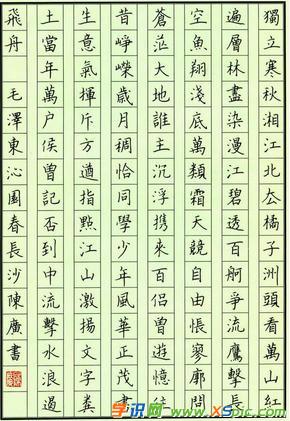 獨立寒秋湘江北厺橘子洲頭看萬山紅
遍層林盡染漫江碧透百舸爭流鷹擊長
空魚翔淺底萬類霜天競自由悵寥廓問
蒼茫大地誰主沉浮携來百侶曾遊憶往
昔崢嶸歲月稠恰同學少年風華正茂書
生意氣揮斥方遒指點江山激揚文字糞
土當年萬户侯曾記否到中流擊水浪遏
飛舟 毛澤東沁園春長沙陳廣書
学识网
www.xspic.com